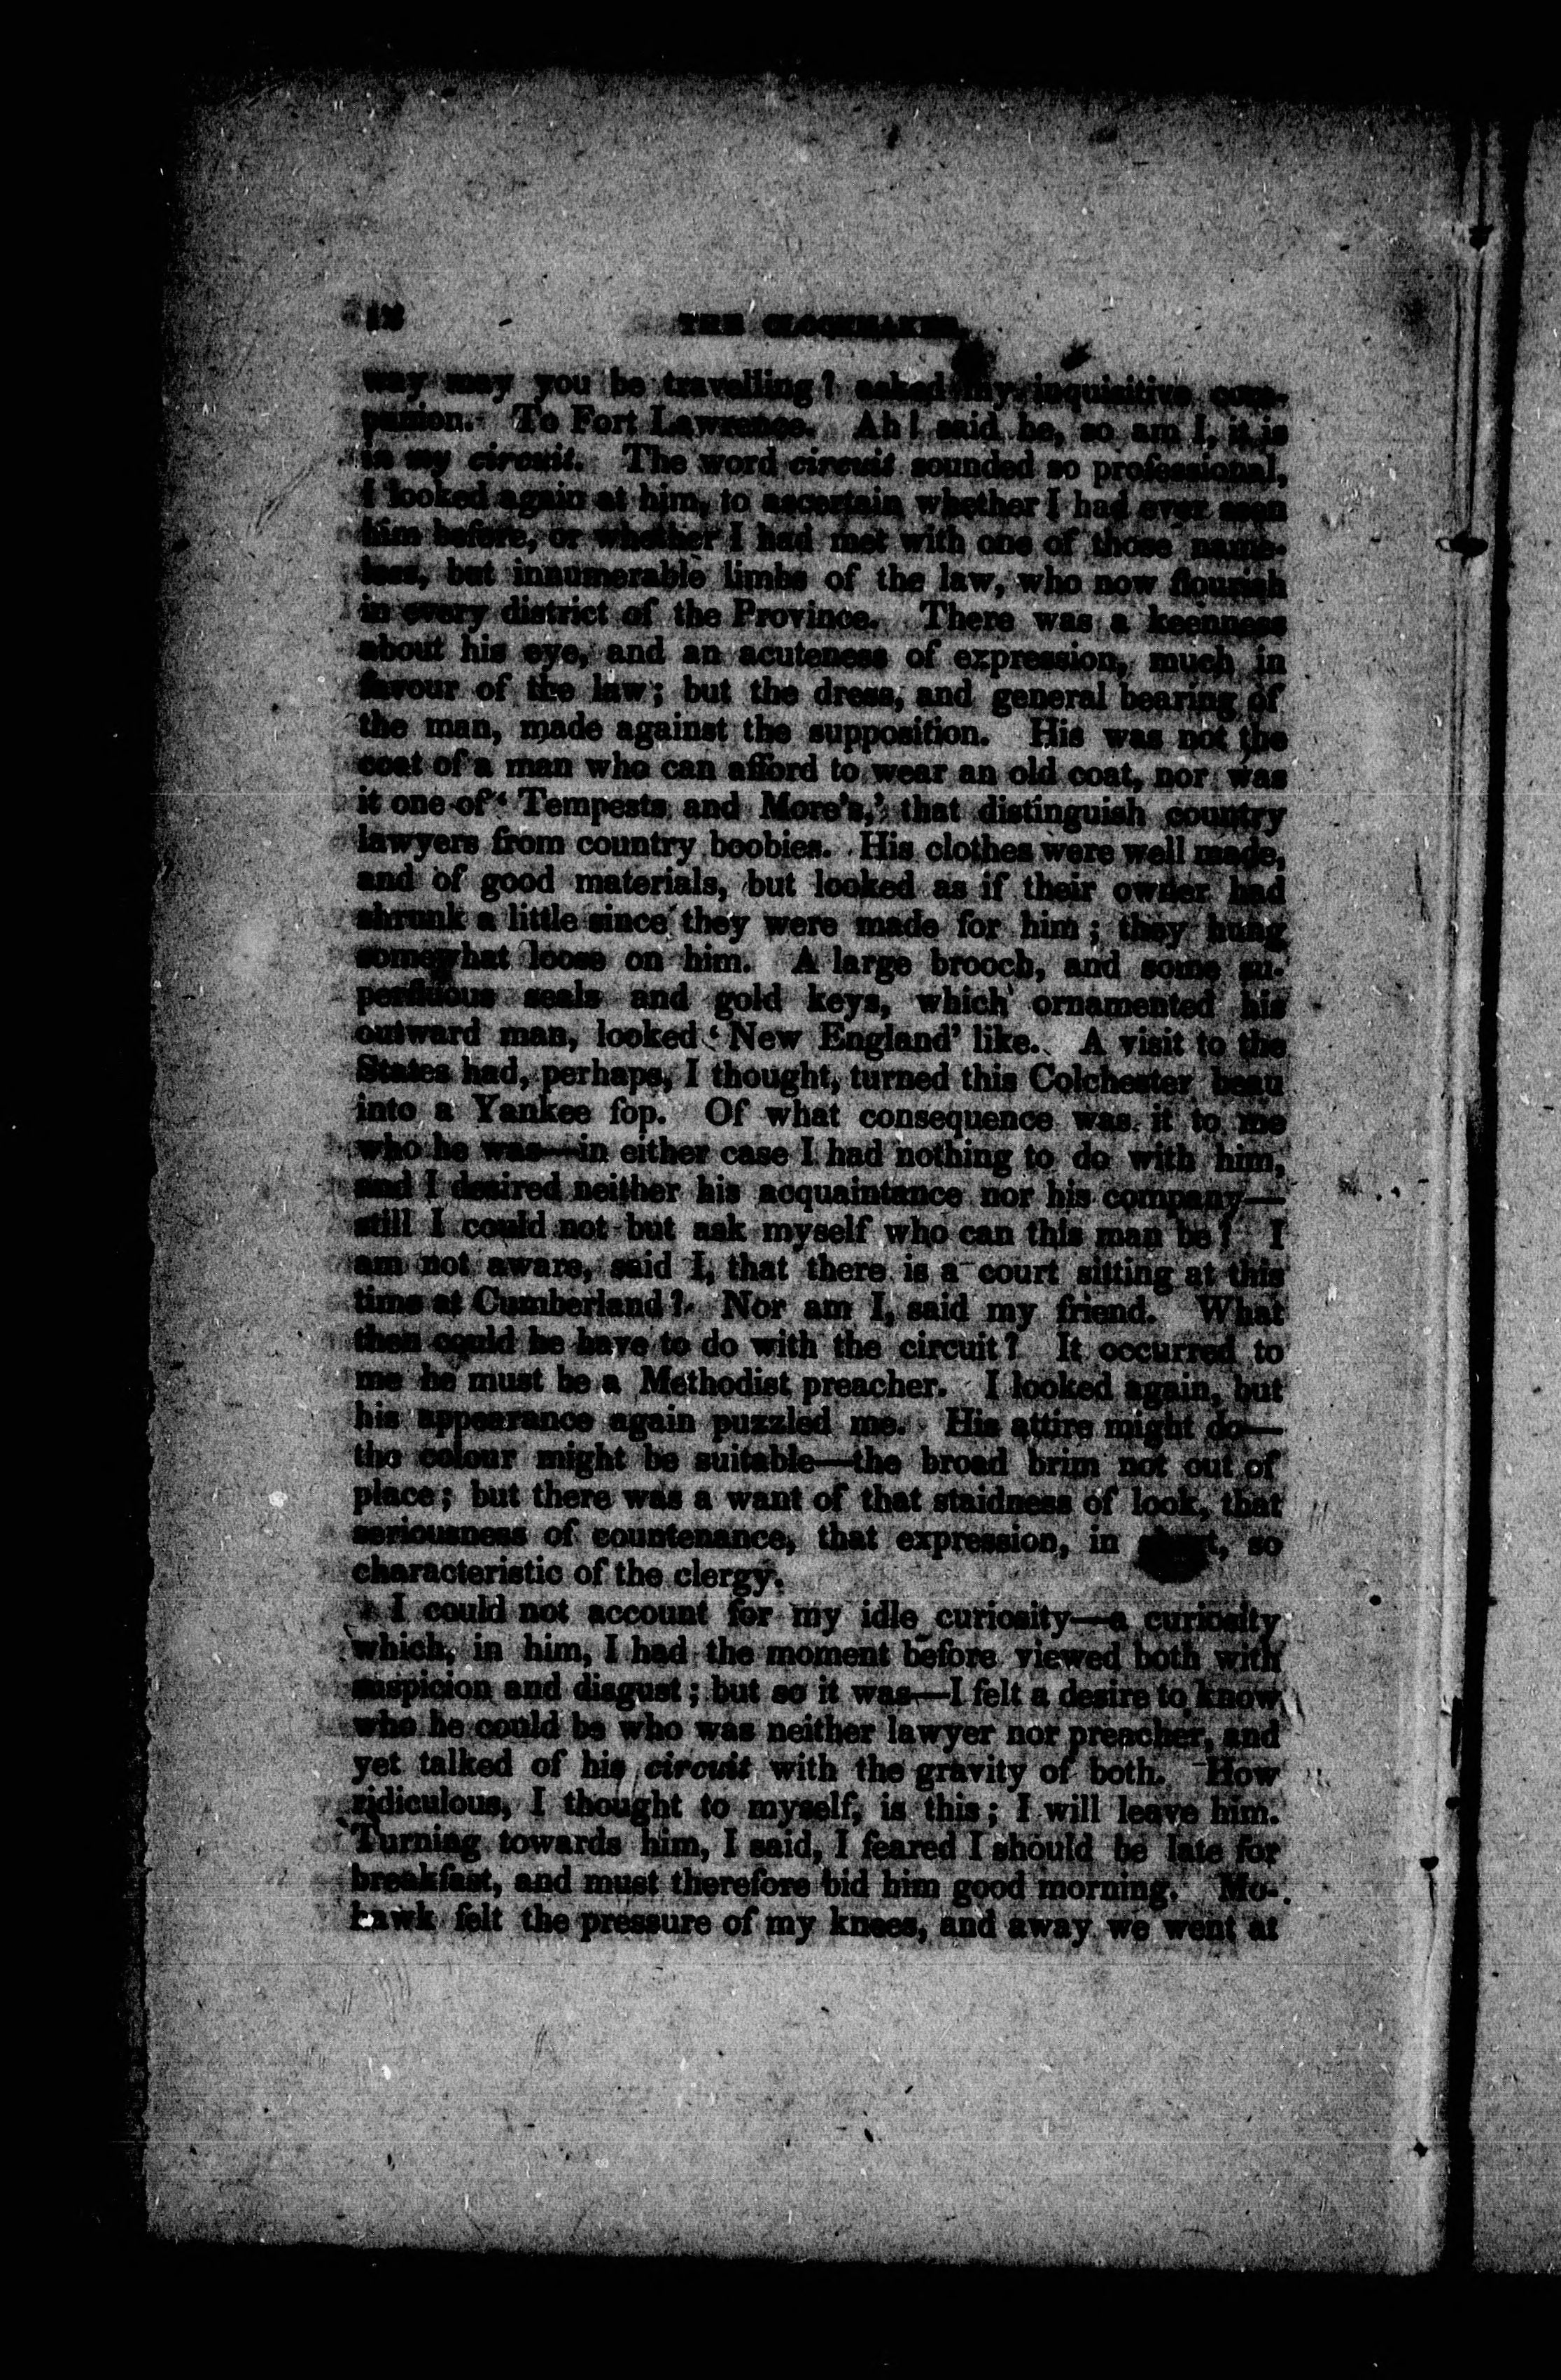 THE CLOCKMAKER.
way may you be travelling? asked my inquisitive com-
panion. To Fort Lawrence. Ah! said he, so am I, it is
in my circuit. The word circuit sounded so professional,
I looked again at him, to ascertain whether I had ever seen
him before, or whether I had met with one of those name-
less, but innumerable limbs of the law, who now flourish
in every district of the Province. There was a keenness
about his eye, and an acuteness of expression, much in
favour of the law; but the dress, and general bearing of
the man, made against the supposition. His was not the
coat of a man who can afford to wear an old coat, nor was
it one of ‘Tempests and More's,’ that distinguish country
lawyers from country boobies. His clothes were well made,
and of good materials, but looked as if their owner had
shrunk a little since they were made for him; they hung
somewhat loose on him. A large brooch, and some su-
perfluous seals and gold keys, which ornamented his
outward man, looked ‘New England’ like. A visit to the
States had, perhaps, I thought, turned this Colchester beau
into a Yankee fop. Of what consequence was it to me
who he was—in either case I had nothing to do with him,
and I desired neither his acquaintance nor his company—
still I could not but ask myself who can this man be? I
am not aware, said I, that there is a court sitting at this
time at Cumberland? Nor am I, said my friend. What
then could he have to do with the circuit? It occurred to
me he must be a Methodist preacher. I looked again, but
his appearance again puzzled me. His attire might do—
the colour might be suitable—the broad brim not out of
place; but there was a want of that staidness of look, that
seriousness of countenance, that expression, in short, so
characteristic of the clergy.
I could not account for my idle curiosity—a curiosity
which, in him, I had the moment before viewed both with
suspicion and disgust; but so it was—I felt a desire to know
who he could be who was neither lawyer nor preacher, and
yet talked of his circuit with the gravity of both. How
ridiculous, I thought to myself, is this; I will leave him.
Turning towards him, I said, I feared I should be late for
breakfast, and must therefore bid him good morning. Mo-
hawk felt the pressure of my knees, and away we went at